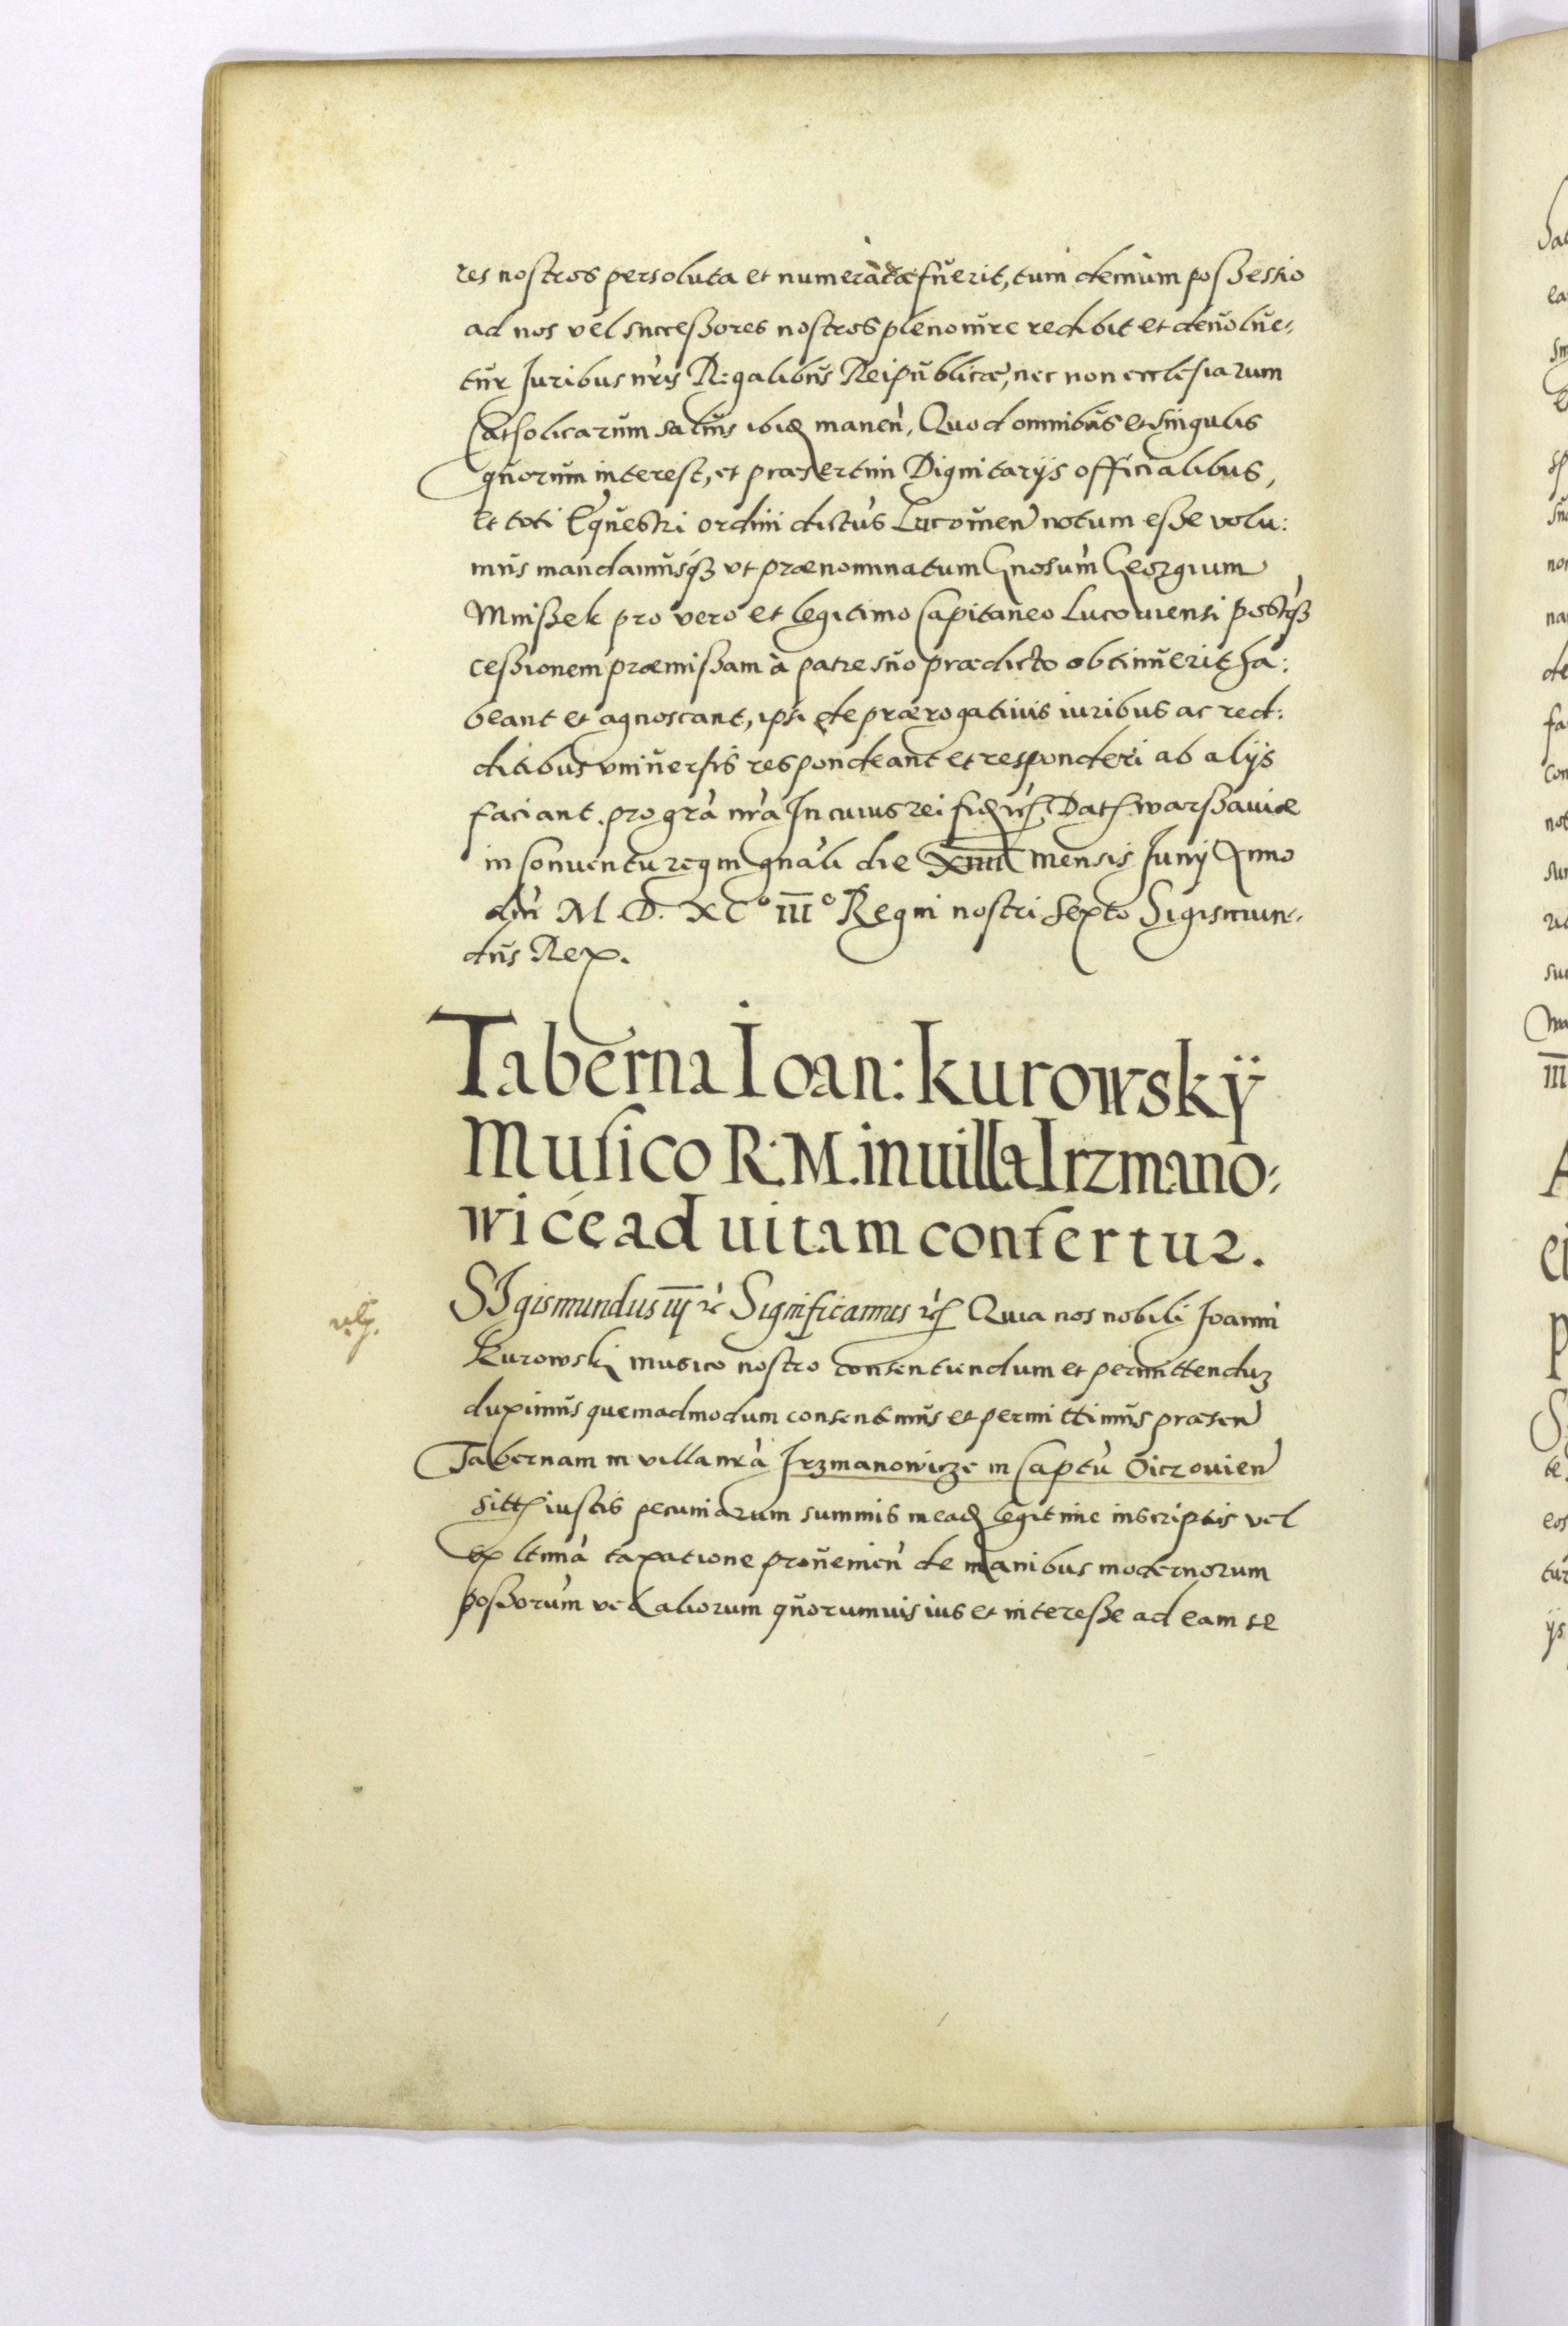 res nostros persoluta et numerata fuerit, tum demum possessio
ad nos vel successores nostros pleno iure redibit et devolve-
tur Juribus nris Regalibus Reipublicæ, nec non ecclesiarum
Catholicarum salvis ibid manen, Quod omnibus et singulis
quorum interest, et præsertim Dignitarijs officialibus,
et toti Equestri ordini dictus Lucovien notum esse volu:
mus mandamusq vt prænominatum Gnosum Georgium
Mnissek pro vero et legitimo Capitaneo Lucoviensi postq
cessionem præmissam à patre suo prædicto obtinuerit ha:
beant et agnoscant, ipsi de prærogativis iuribus ac red:
ditibus vniversis respondeant et responderi ab alijs
faciant. pro gra nra In cuius rei fid rc. Dat Warssaviæ
in Conventu regni gnali die XIIII mensis Junij Anno
dni M. D. XC° III° Regni nostri Sexto Sigismun-
dus Rex.
Taberna Ioan: Kurowskÿ
Musico R: M. in uilla Irzmano-
wicé ad uitam confertur.
SIgismundus iij rc Significamus rc Quia nos nobili Joanni
Kurowski musico nostro consentiendum et permittendu
duximus quemadmodum consentimus et permittimus præsen
Tabernam in villa nra Jrzmanowicze in Captu Oiczovien
sitt iustis pecuniarum summis in ead legitime inscriptis vel
ex ltima taxatione provenien de manibus modernorum
possorum vel aliorum quorumvis ius et interesse ad eam se